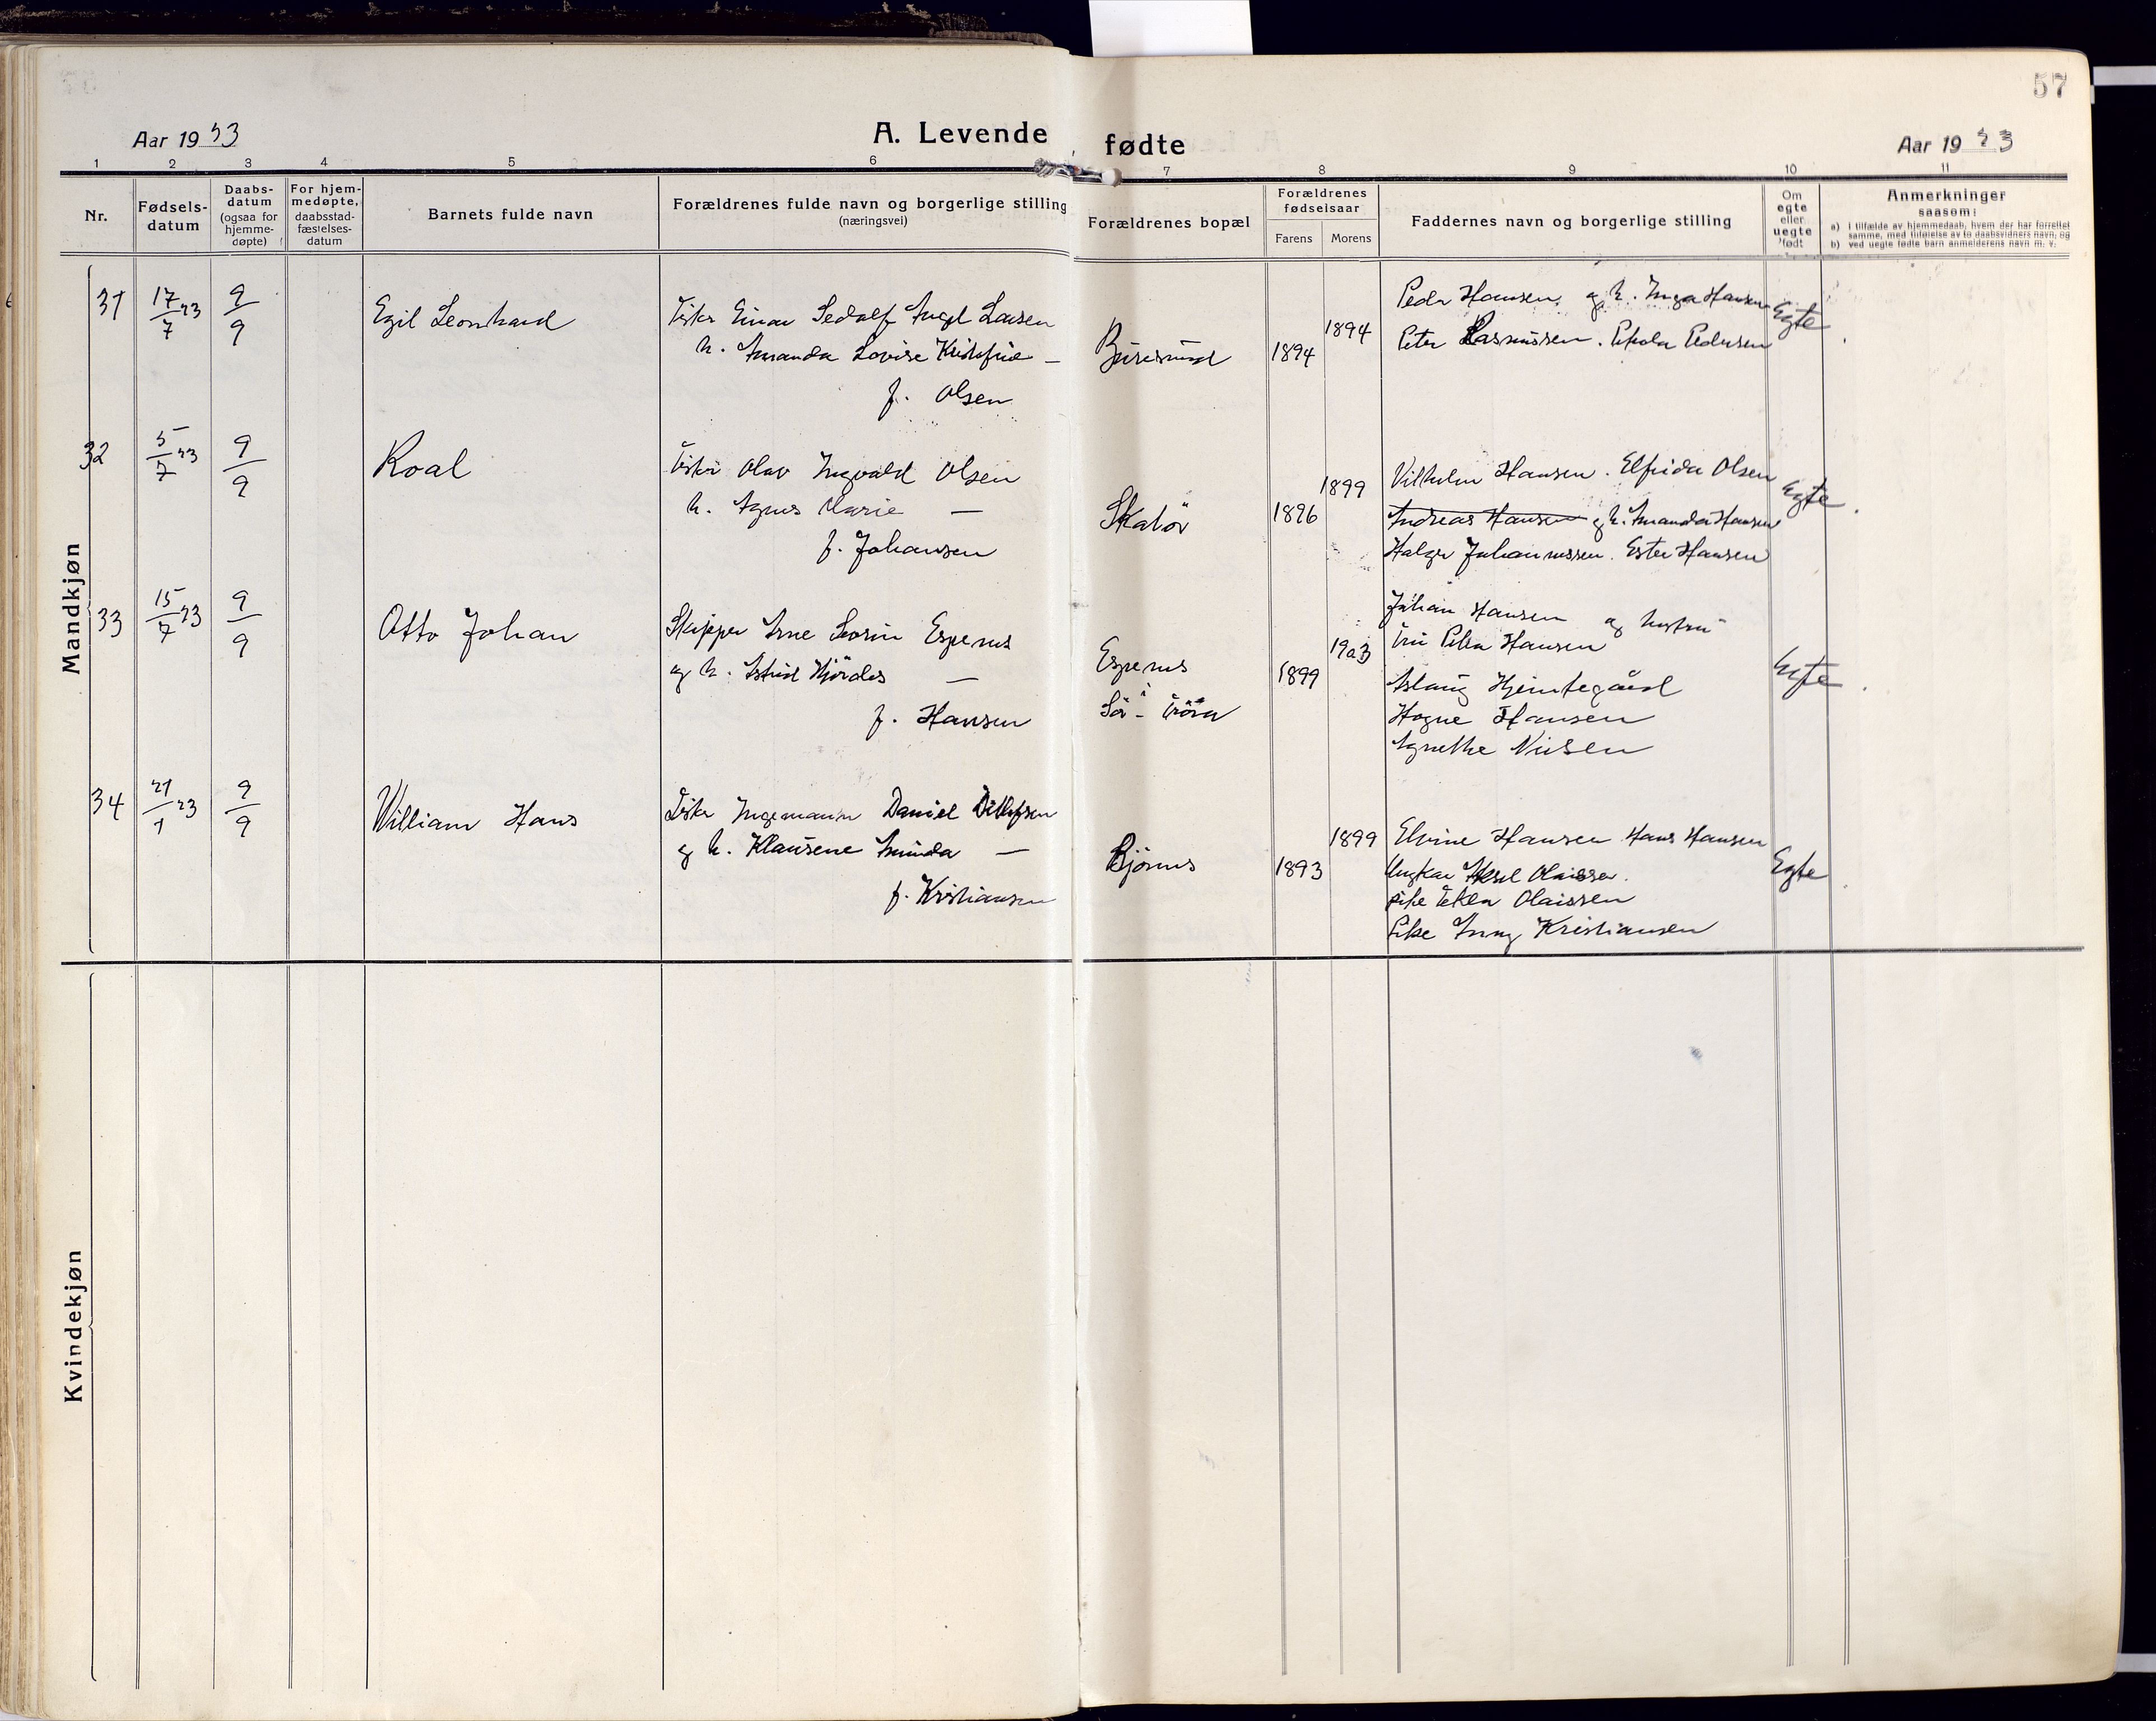 57
Aar 1923
A. Levende fødte
Aar 1923
1 2 3 4 5 6 7 8 9 10 11
Nr.
Fødsels-
datum
Daabs-
datum
(ogsaa for
hjemme-
døpte)
For hjem-
medøpte,
daabsstad-
fæstelses-
datum
Barnets fulde navn
Forældrenes fulde navn og borgerlige stilling
(næringsvei)
Forældrenes bopæl
Forældrenes
fødselsaar
Farens Morens
Faddernes navn og borgerlige stilling
Om
egte
eller
uegte
født
Anmerkninger
saasom:
a) i tilfælde av hjemmedaab, hvem der har forrettet
samme, med tilføielse av to daabsvidners navn, og
b) ved uegte fødte barn anmelderens navn m. v.
Mandkjøn
31 17/7 23 9/9 Egil Leonhard
Fisker Einar Larsen
h. Amanda Lovise —
f. Olsen
1894 1894
Peder Hansen og h. Inga Hansen
Peter Rasmussen. Pedersen
Egte
32 5/7 23 9/9 Roal
Fisker Olav Ingvald Olsen
h. Agnes Marie —
f. Johansen
Skatør 1896 1899
Vilhelm Hansen. Elfrida Olsen
Andreas Hansen og h. Amanda Hansen
Halgr Johannessen. Ester Hansen
Egte
33 15/7 23 9/9 Otto Johan
Skipper Arne Espenes
og h. Astrid Hjördis —
f. Hansen
Espenes
1899 1903
Johan Hansen og hustru
Hansen
Aslaug Hjemtegård
Hogne Hansen
Agnethe Nilsen
Egte
34 21/1 23 9/9 William Hans
Fisker Ingemann Daniel Ditlefsen
og h. Klausene Aminda —
f. Kristiansen
1893 1899
Elvine Hansen Hans Hansen
Ungkar Aksel Olaissen.
pike Tekla Olaissen
Pike Kristiansen
Egte
Kvindekjøn